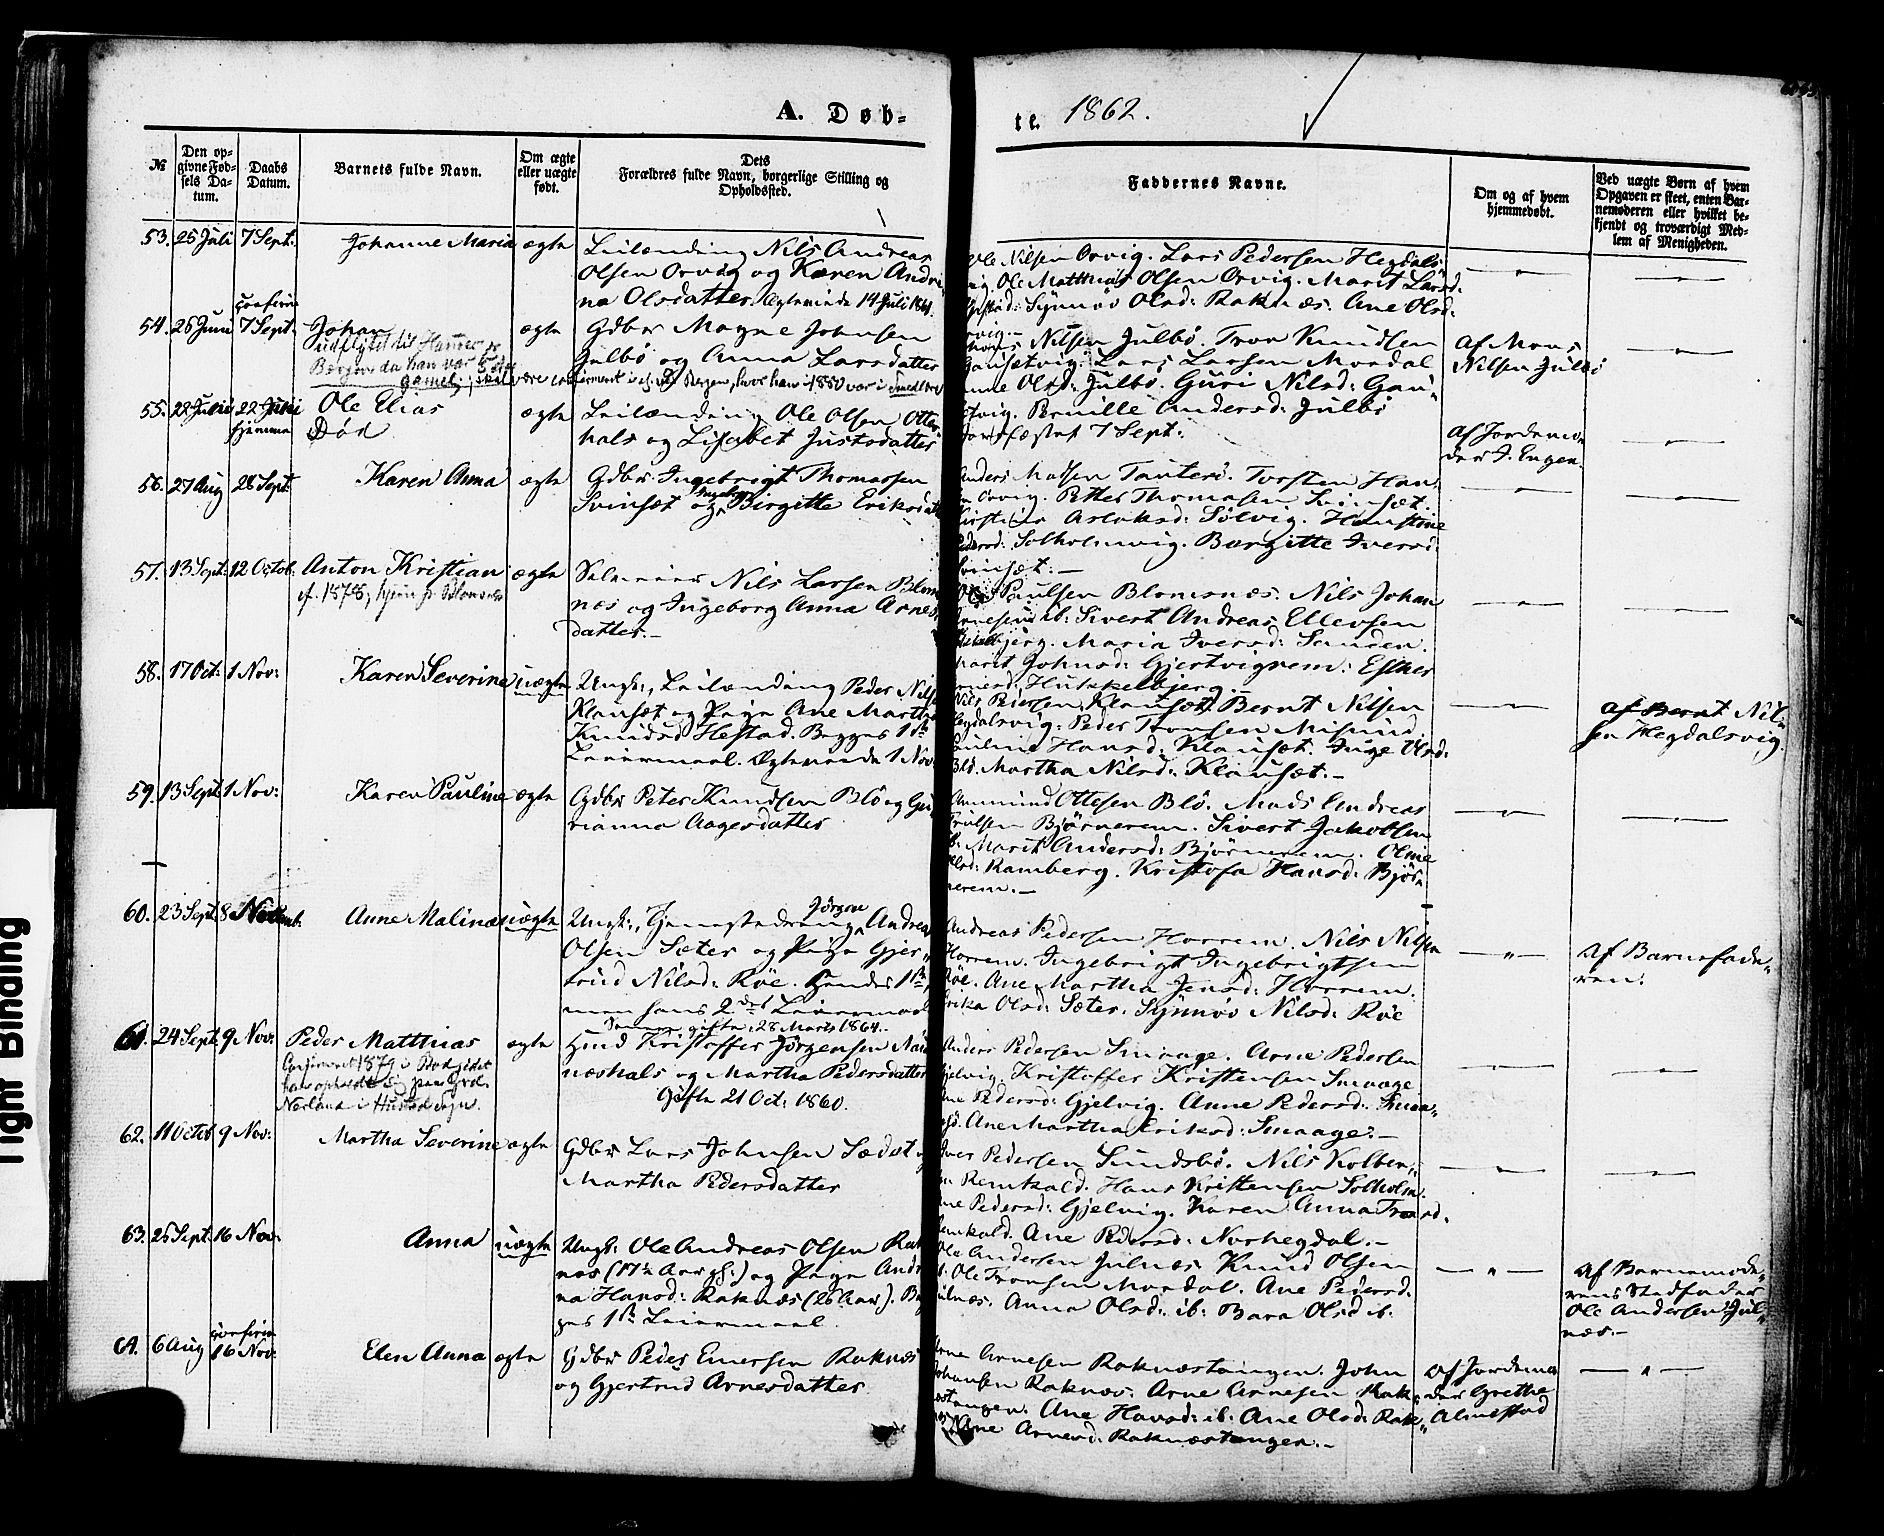 A. Døb-
te. 1862.
№
Den op-
givne Fød-
sels Da-
tum.
Daabs
Datum.
Barnets fulde Navn.
Om ægte
eller uægte
født.
Dets
Forældres fulde Navn, borgerlige Stilling og
Opholdssted.
Faddernes Navne.
Om og af hvem
hjemmedøbt.
Ved uægte Børn af hvem
Opgaven er skeet, enten Bar-
nemoderen eller hvilket be-
kjendt og troværdigt Med-
lem af Menigheden.
53. 25 Juli 7 Sept: Johanne Maria ægte Leilænding Nils Andreas
Olsen Orvig og Karen Andri-
na Olsdatter. Ægteviede 14 Juli 1861.
Ole Nilsen Orvig. Lars Pedersen Hegdals-
vig. Ole Matthias Olsen Orvig. Marit Larsd:
Sÿnnøv Olsd: Raknæs. Ane Olsd:
Orvig.-
54. 26 Juni 7 Sept: Johan ægte Gdbr Magne Johnsen
Julbø og Anna Larsdatter
Nilsen Julbø. Tron Knudsen
Gausetvig. Lars Larsen Mordal
Anne Olsd: Julbø. Guri Nilsd: Gau-
setvig. Pernille Andersd: Julbø
Af Mons
Nilsen Julbø
55. 22 Juli 22 Juli
hjemme
Ole Elias
Død
ægte Leilænding Ole Olsen Otter-
hals og Lisabet Justsdatter
7 Sept:
Af Jordemo-
der J. Engen.
56. 27 Aug 28 Sept Karen Anna ægte Gdbr Ingebrigt Thomassen
Svinsæt og Birgitte Eriksdat
Anders Madsen Tauterø. Torsten Han-
sen Orvig. Petter Thomasen Svinsæt.
Aslaksd: Sølvig. Hanstine
Pedersd: Solholmvig. Bargitte Iversd:
Svinsæt.-
57. 13 Sept: 12 Octob: Anton Kristian ægte
cf. 1878, hjem fr. Blomsnes
Selveier Nils Larsen Blom
næs og Ingeborg Anna Arnes
datter.-
Paulsen Blomsnæs. Nils Johan
Arnesen ib: Sivert Andreas Ellevsen
Hukkelbjerg. Maria Iversd: Sanden.
Marit Johnsd: Gjertvigrem: Esther
Hukkelbjerg.-
58. 17 Oct: 1 Nov: Karen Severine uægte Ungk:, Leilænding Peder Nils
Klauset og Pige Ane Martha
Knudsd Hestad. Begges 1ste
Leiermaal. Ægteviede 1 Nov:
Nils Pedersen Klauset. Bernt Nilsen
Hegdalsvig. Peder Tronsen Misund
Pauline Hansd: Klauset. Inge Olsd:
Martha Nilsd: Klauset.-
Af Bernt Nil-
sen Hegdalsvig.
59. 13 Sept 1 Nov: Karen Pauline ægte Gdbr Peter Knudsen Blø og Gu
rianna Aagesdatter
Ammund Ottesen Blø. Mads Andreas
Trulsen Bjørnerem. Sivert Jakobsen
ib: Marit Andersd: Bjørnerem. Oline
Olsd: Ramberg. Kristofa Hansd: Bjør-
nerem.-
60. 23 Sept: 8 Novemb. Anne Malina uægte Ungk:, Hjemstedreng Jørgen Andreas
Olsen Sæter og Pige Gjer-
trud Nilsd: Røe. Hendes 1ste,
men hans 2det Leiermaal
Samme gifte 28 Marts 1864.
Andreas Pedersen Horrem. Nils Nilsen
Horrem. Ingebrigt Ingebrigtsen
Røe. Ane Martha Jensd: Horrem.
Erika Olsd: Sæter. Sÿnnøv Nilsd: Røe
Af Barnefade-
ren.
61. 24 Sept: 9 Nov: Peder Matthias ægte
Confirmert 1879 i Bud
Nerland i Hustad Sogn.
Husmd Kristoffer Jörgensen
næshals og Martha Pedersdatter
Gifte 21 Oct: 1860.
Anders Pedersen Smaage. Arne Pedersen
Gjelvig. Kristoffer Kristensen Smaage
Ane Pedersd: Gjelvig. Anne Pedersd: Smaa-
Ane Martha Eriksd: Smaage.-
62. 11 Octob 9 Nov: Martha Severine ægte Gdbr Lars Johnsen Sædet og
Martha Pedersdatter
Iver Pedersen Sundsbø. Nils Kolben-
Remkald. Hans Kristensen Solholm.
Ane Pedersd: Gjelvig. Karen Anna Tronsd.
Remkald. Ane Pedersd: Norhegdal.-
63. 25 Sept: 16 Nov: Anna uægte Ungk: Ole Andreas Olsen Rak
næs (17½ Aar gl:) og Pige Andri
na Hansd: Raknæs (26 Aar). Beg
ges 1ste Leiermaal.
Ole Andersen Julnæs. Knud Olsen
ib. Ole Tronsen Mordal. Ane Pedersd.
Julnæs. Anna Olsd: ib: Bara Olsd ib.
Af Barnemode-
rens Stedfader
Ole Andersen Jul-
næs.-
64. 6 Aug 16 Nov: Elen Anna ægte Gdbr Peder Einersen Raknæs
og Gjertrud Arnesdatter
Arne Arnesen Raknæstangen. John
Johansen Raknæs. Arne Arnesen Rak-
næstangen. Ane Hansd: ib: Ane Olsd: Rak-
Ane Arnesd. Raknæstangen.-
Af Jordemo-
der Grethe
Almestad
Tight Binding